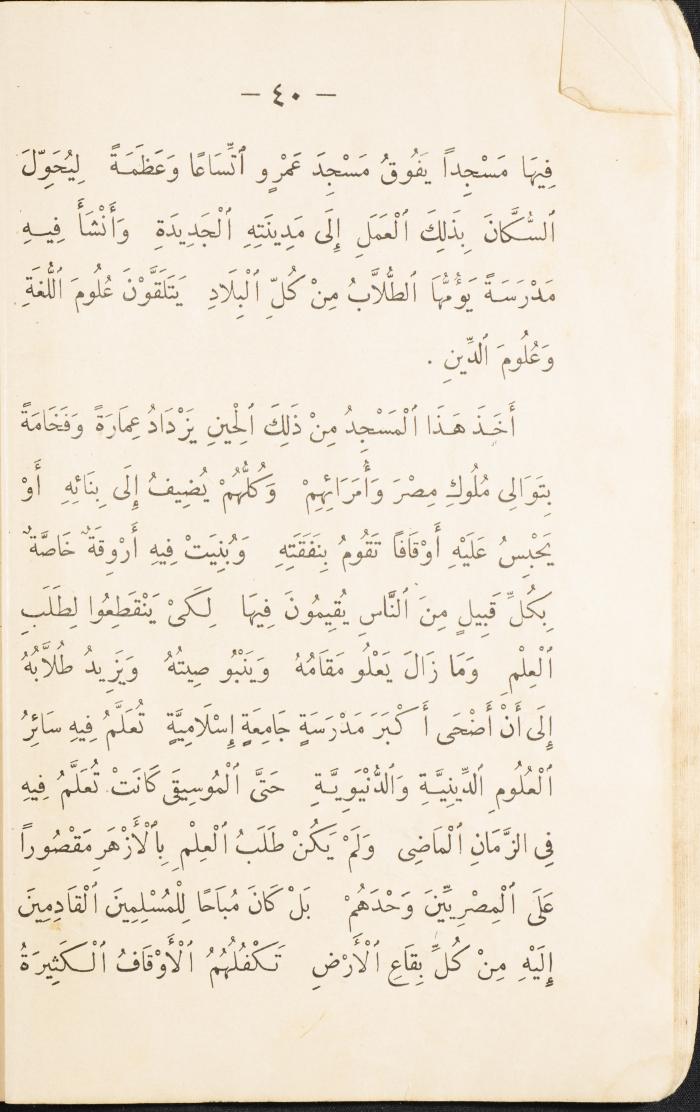 — ٤٠ —
فِيهَا مَسْجِداً يَفُوقُ مَسْجِدَ عَمْرٍو ٱتِّسَاعًا وَعَظَمَةً لِيُحَوِّلَ
ٱلسُّكَّانَ بِذَلِكَ ٱلْعَمَلِ إِلَى مَدِينَتِهِ ٱلْجَدِيدَةِ وَأَنْشَأَ فِيهِ
مَدْرَسَةً يَؤُمُّهَا ٱلطُّلَّابُ مِنْ كُلِّ ٱلْبِلَادِ يَتَلَقَّوْنَ عُلُومَ ٱللُّغَةِ
وَعُلُومَ ٱلدِّينِ .
أَخَذَ هَذَا ٱلْمَسْجِدُ مِنْ ذَلِكَ ٱلْحِينِ يَزْدَادُ عِمَارَةً وَفَخَامَةً
بِتَوَالِى مُلُوكِ مِصْرَ وَأُمَرَائِهِمْ وَكُلُّهُمْ يُضِيفُ إِلَى بِنَائِهِ أَوْ
يَحْبِسُ عَلَيْهِ أَوْقَافًا تَقُومُ بِنَفَقَتِهِ وَبُنِيَتْ فِيهِ أَرْوِقَةٌ خَاصَّةٌ
بِكُلِّ قَبِيلٍ مِنَ ٱلنَّاسِ يُقِيمُونَ فِيهَا لِكَىْ يَنْقَطِعُوا لِطَلَبِ
ٱلْعِلْمِ وَمَا زَالَ يَعْلُو مَقَامُهُ وَيَنْبُو صِيتُهُ وَيَزِيدُ طُلَّابُهُ
إِلَى أَنْ أَضْحَى أَكْبَرَ مَدْرَسَةٍ جَامِعَةٍ إِسْلَامِيَّةٍ تُعَلَّمُ فِيهِ سَائِرُ
ٱلْعُلُومِ ٱلدِّينِيَّةِ وَٱلدُّنْيَوِيَّةِ حَتَّى ٱلْمُوسِيقَى كَانَتْ تُعَلَّمُ فِيهِ
فِى ٱلزَّمَانِ ٱلْمَاضِى وَلَمْ يَكُنْ طَلَبُ ٱلْعِلْمِ بِٱلْأَزْهَرِ مَقْصُوراً
عَلَى ٱلْمِصْرِيِّينَ وَحْدَهُمْ بَلْ كَانَ مُبَاحًا لِلْمُسْلِمِينَ ٱلْقَادِمِينَ
إِلَيْهِ مِنْ كُلِّ بِقَاعِ ٱلْأَرْضِ تَكْفُلُهُمُ ٱلْأَوْقَافُ ٱلْكَثِيرَةُ